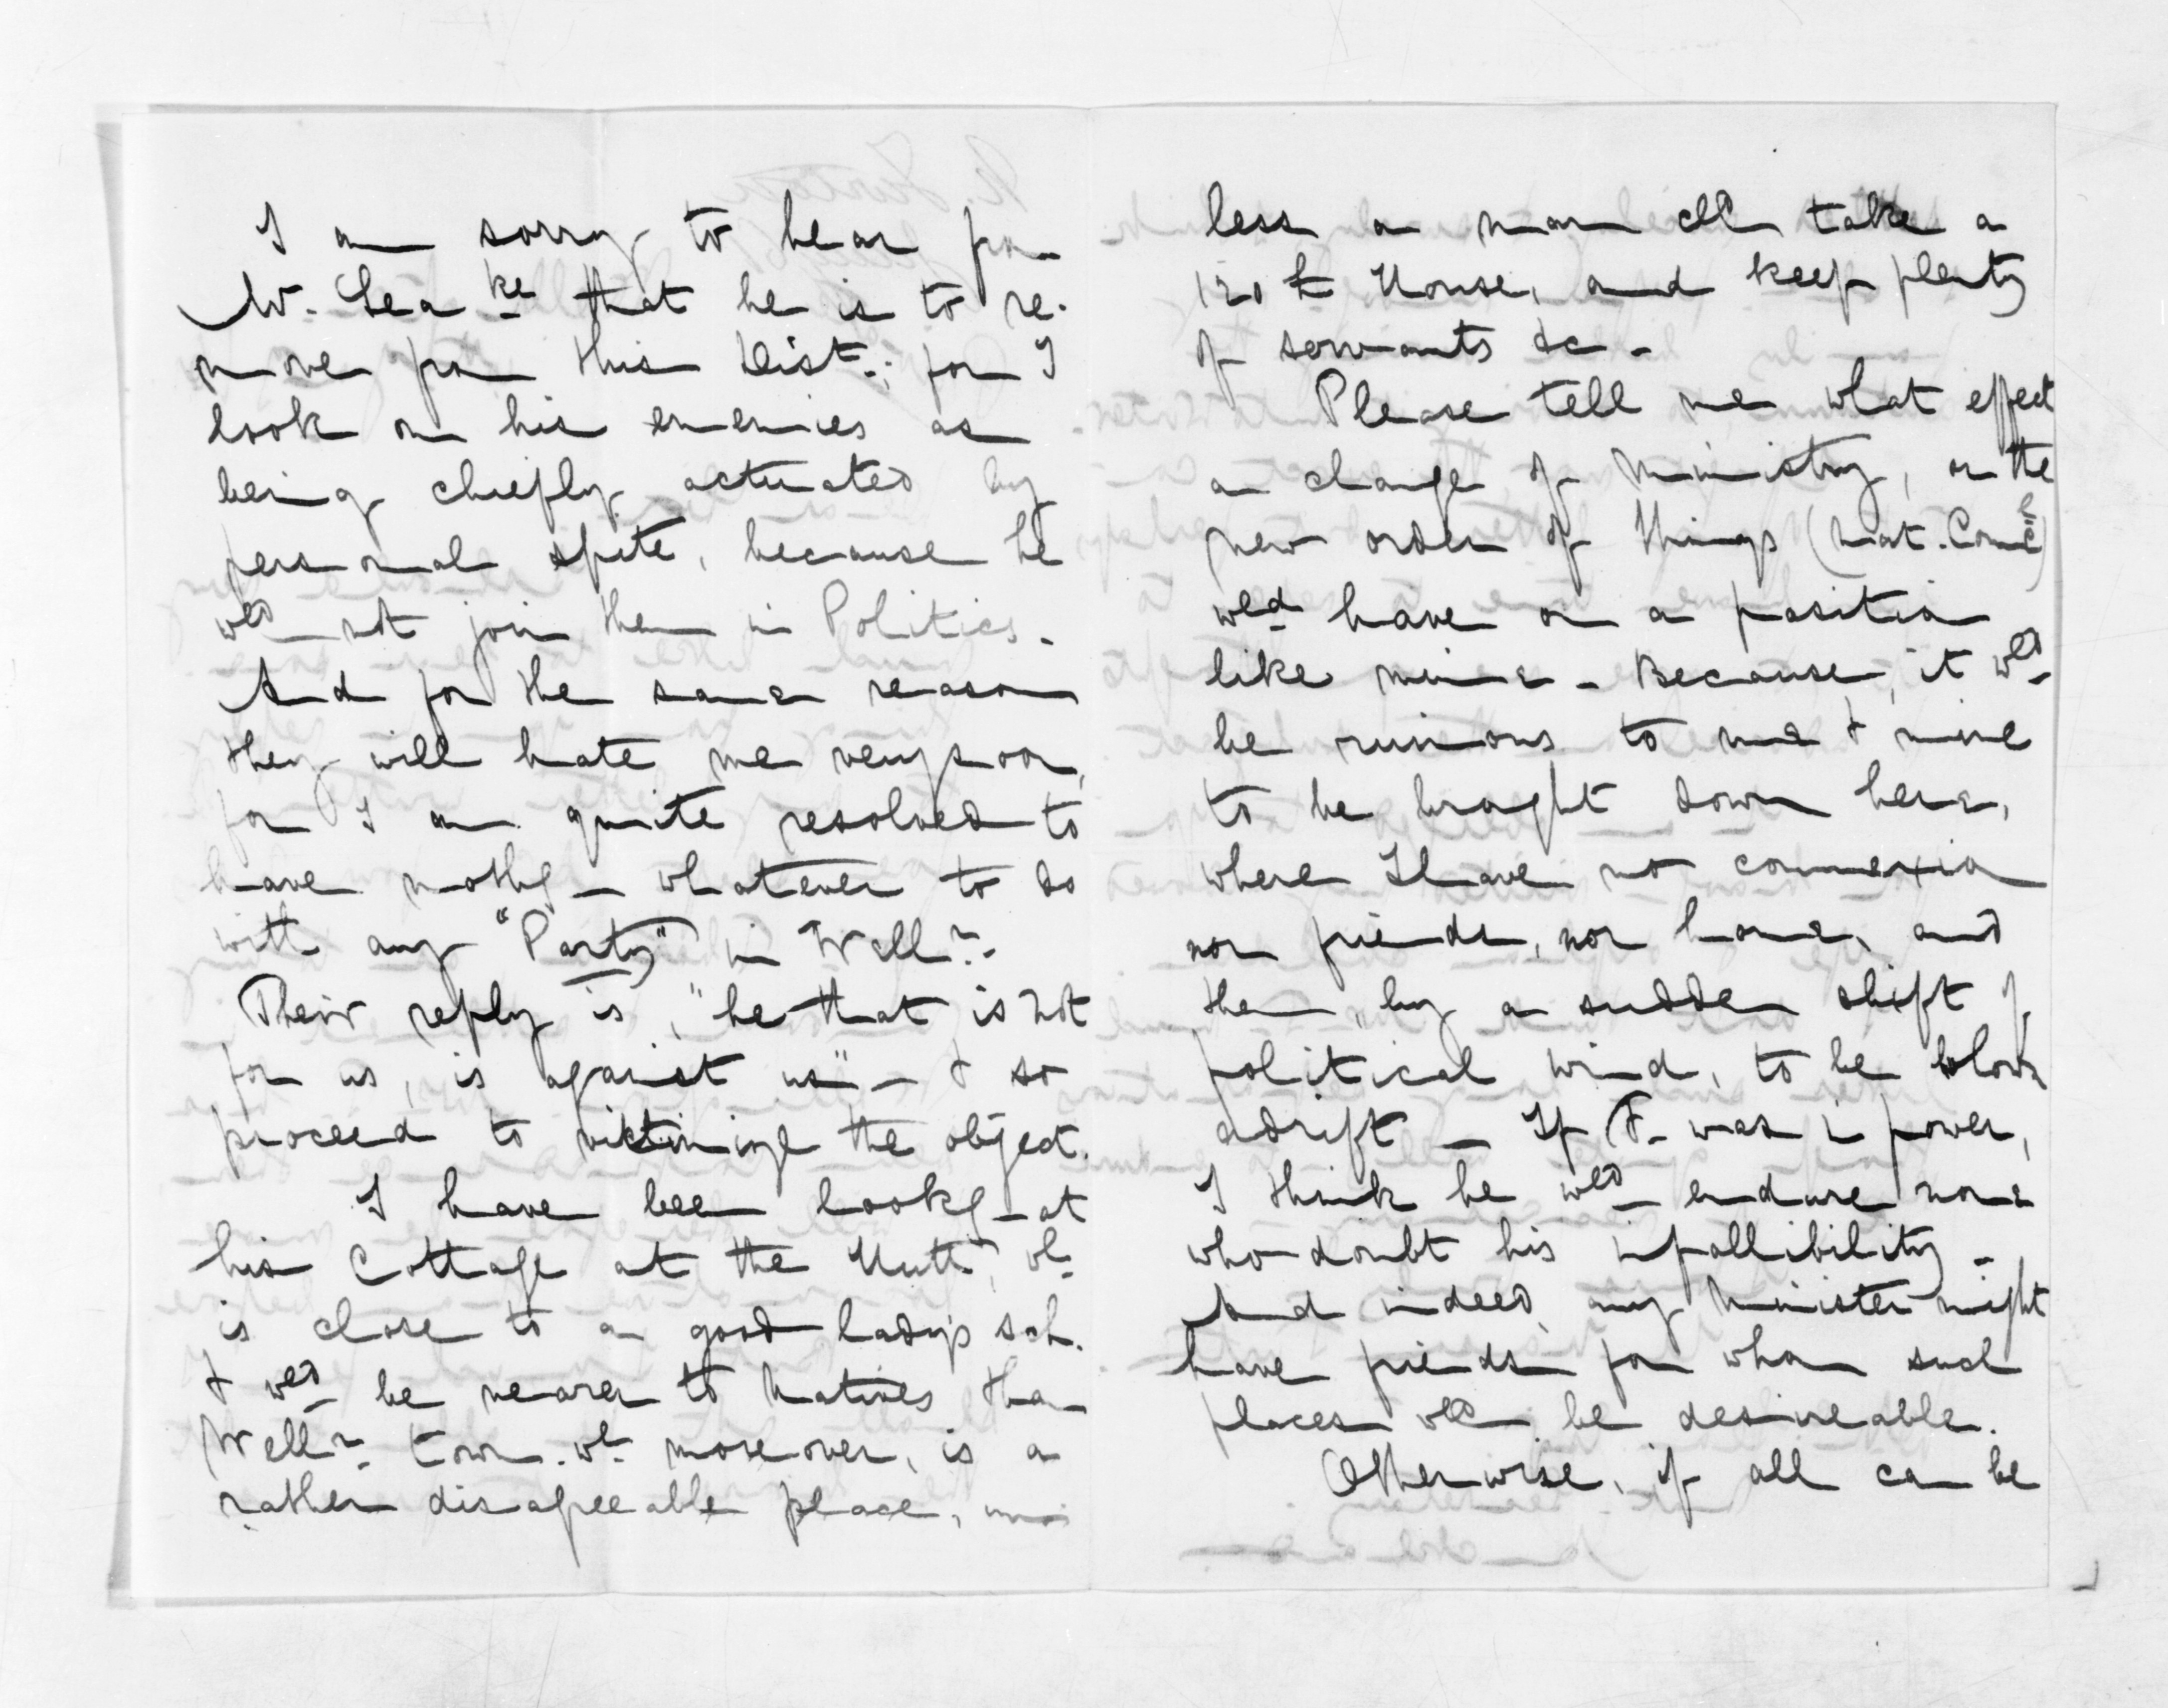 I am sorry to hear from
Mr. Sea^ke that he is to re-
move from this Dist^t.; for I
look on his enemies as
being chiefly actuated by
personal spite, because he
w^ld not join them in Politics.
And for the same reason
they will hate me very soon,
for I am quite resolved to
have nothg whatever to do
with any "Party" in Well^n.
Their reply is, "he that is not
for us, is against us" - & so
proceed to victimize the object.
I have been lookg at
his Cottage at the Hutt, w^h
is close to a good lady's sch.
& w^ld be nearer to Natives than
Well^n town. w^h moreover, is a
rather disagreeable place, un-
less a man can take a
120 £ House, and keep plenty
of servants &c -
Please tell me what effect
a change of Ministry, or the
new order of things (Nat. Counc^l)
w^ld have on a position
like mine - Because, it w^ld
be ruinous to me & mine
to be brought down here,
where I have no connexion
nor friends, nor home, and
then, by a sudden shift of
political wind, to be blown
adrift - If F. was in power,
I think he w^ld endure none
who doubt his infallibility -
And indeed, any Minister might
have friends for whom such
places w^ld be desireable.
Otherwise, if all can be